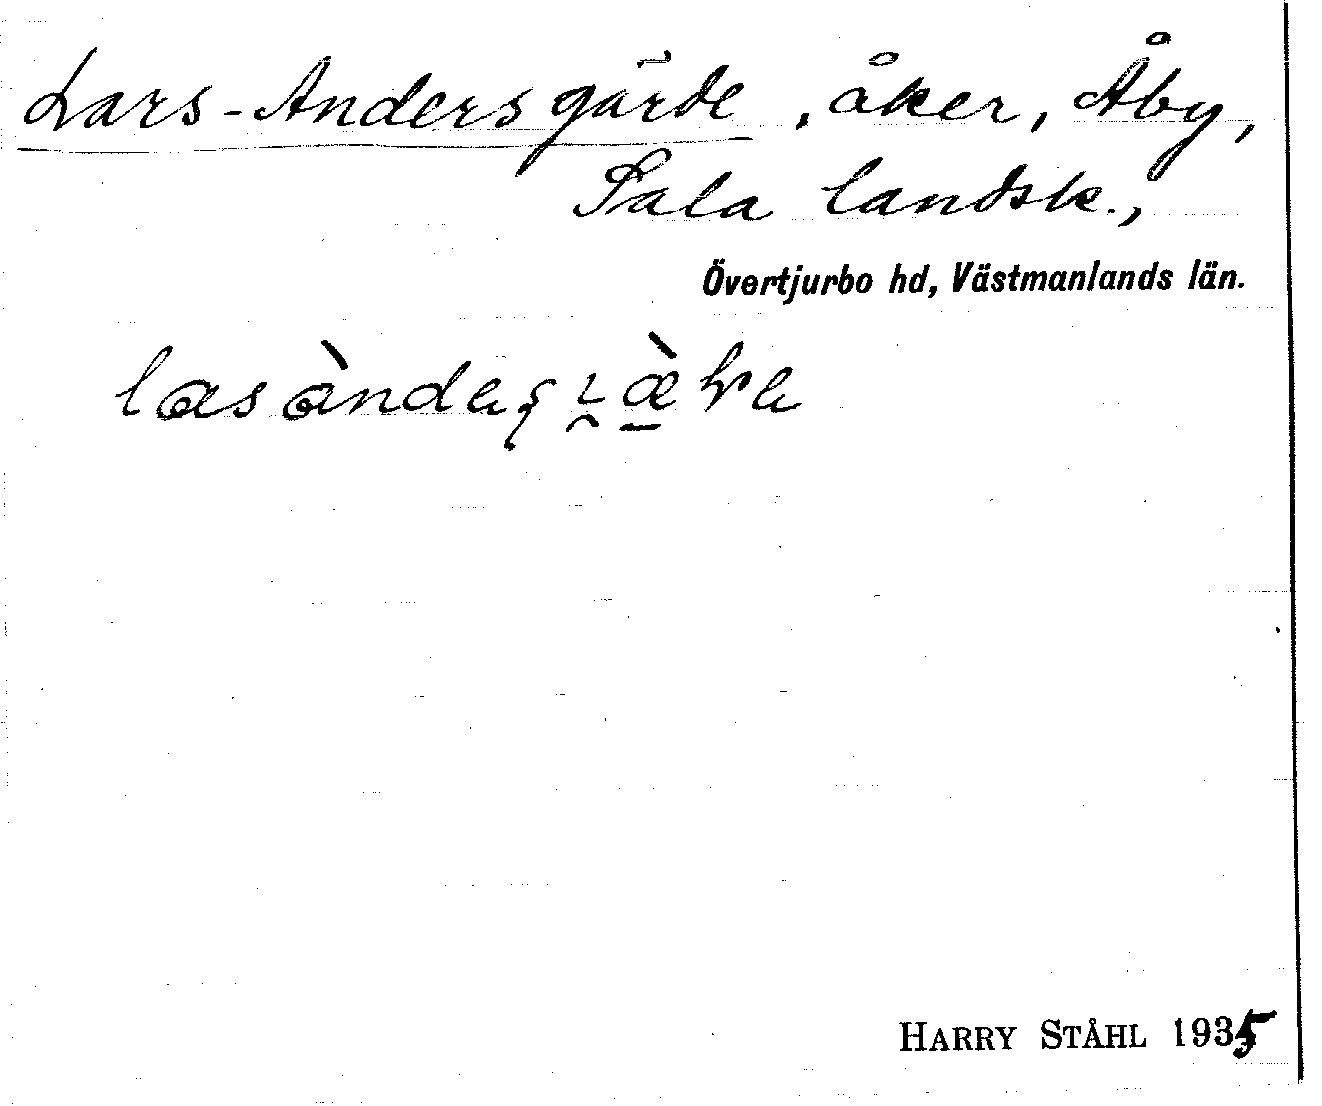 Lars-Andersgärde, åker, Åby,
Sala landsk.,
Övertjurbo hd, Västmanlands län.
HARRY STÅHL 1935